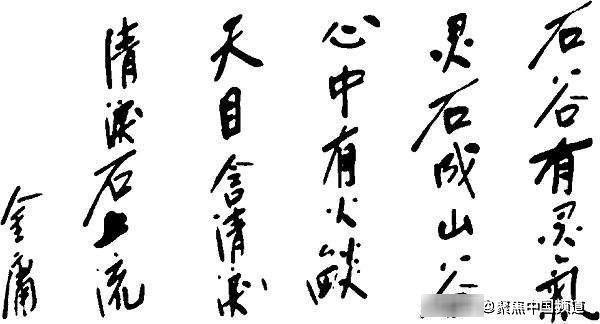 石谷有灵氣
灵石成山谷
心中有火燄
天目含清淚
清淚石上流
金庸
@聚焦中国频道